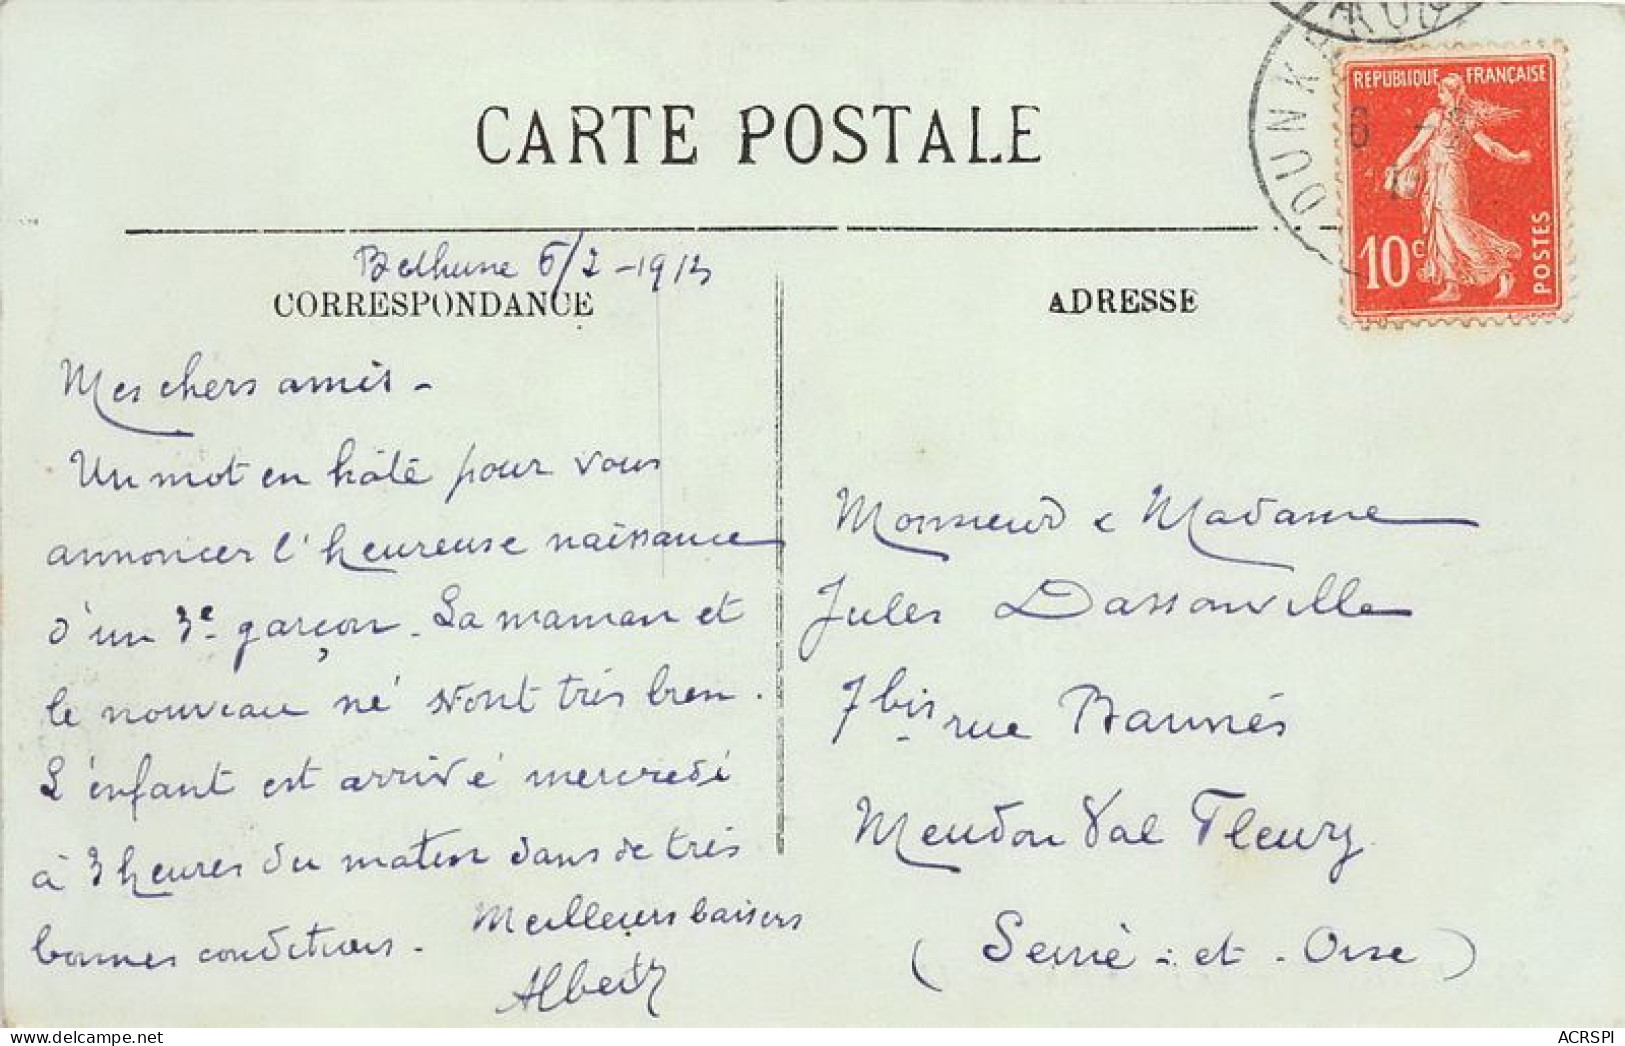 CARTE POSTALE
Bethune 6/2-1913
CORRESPONDANCE
Mes chers amis -
Un mot en hâte pour vous
annoncer l'heureuse naissance
d'un 3e garçon. La maman et
le nouveau né vont très bien.
L'enfant est arrivé mercredi
à 3 heures du matin dans de très
bonnes conditions. Meilleurs baisers
Albert
ADRESSE
Monsieur & Madame
Jules Dassonville
7 bis rue
Meudon Val Fleury
(Seine-et-Oise)
DUNK
REPUBLIQUE FRANÇAISE
10c
POSTES
ACRSPI